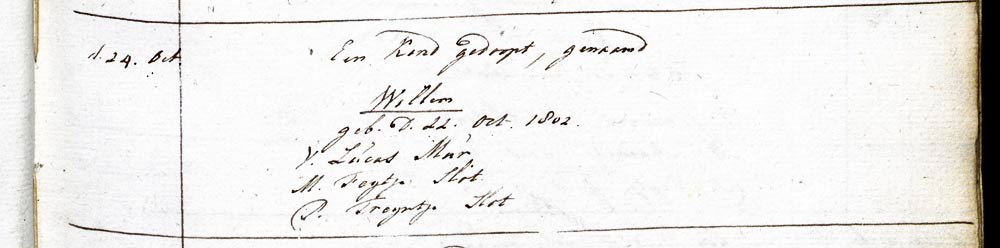 d. 24. Oct. Een Kind gedoopt, genaamd
Willem
geb. d. 22. Oct. 1802.
V. Lucas Mür
M. Feytje Slot
P. Treyntje Slot